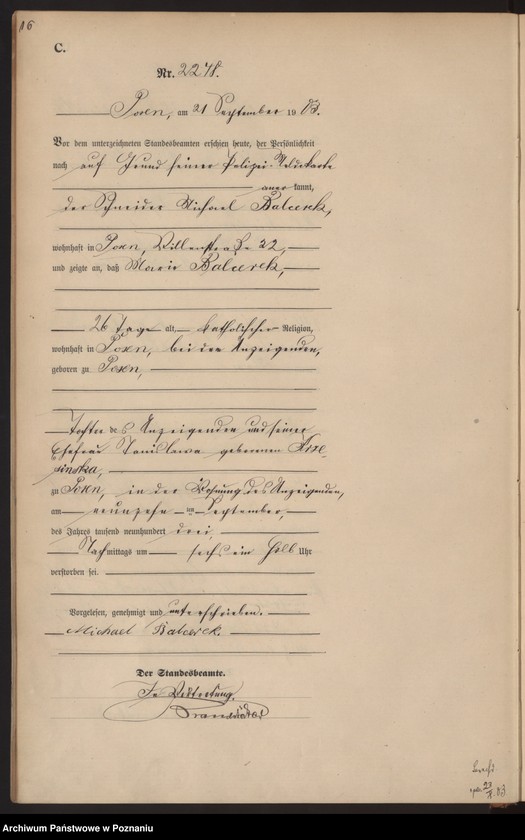 16
C.
Nr. 2278.
Posen, am 21 September 1903.
Vor dem unterzeichneten Standesbeamten erschien heute, der Persönlichkeit
nach auf Grund seiner Polizei-Meldekarte
anerkannt,
der Schneider Michael Balcerek,
wohnhaft in Posen, 32,
und zeigte an, daß Marie Balcerek,
26 Tage alt, katholischer Religion,
wohnhaft in Posen, bei dem Anzeigenden,
geboren zu Posen,
Tochter des Anzeigenden und seiner
Ehefrau Stanislawa geborenen
zu Posen, in der Wohnung des Anzeigenden,
am neunzehnten September,
des Jahres tausend neunhundert drei,
Nachmittags um sechs ein halb Uhr
verstorben sei.
Vorgelesen, genehmigt und unterschrieben.
Michael Balcerek.
Der Standesbeamte.
In Vertretung.
Archiwum Państwowe w Poznaniu